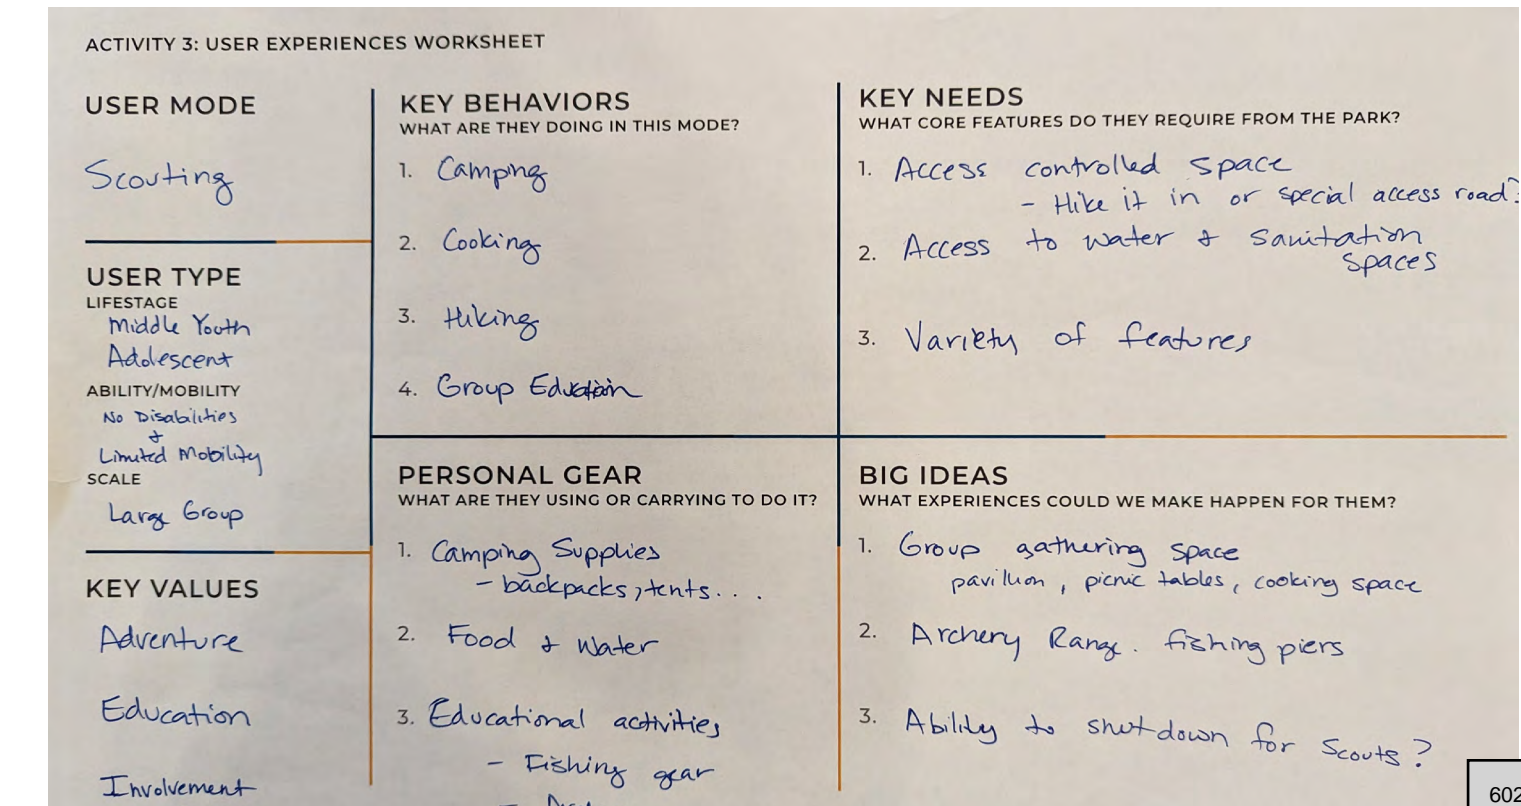 ACTIVITY 3: USER EXPERIENCES WORKSHEET
USER MODE
Scouting
USER TYPE
LIFESTAGE
Middle Youth
Adolescent
ABILITY/MOBILITY
No Disabilities
+
Limited Mobility
SCALE
Large Group
KEY VALUES
Adventure
Education
Involvement
KEY BEHAVIORS
WHAT ARE THEY DOING IN THIS MODE?
1. Camping
2. Cooking
3. Hiking
4. Group Education
PERSONAL GEAR
WHAT ARE THEY USING OR CARRYING TO DO IT?
1. Camping Supplies
- backpacks, tents...
2. Food + Water
3. Educational activities
- Fishing gear
KEY NEEDS
WHAT CORE FEATURES DO THEY REQUIRE FROM THE PARK?
1. Access controlled space
- Hike it in or special access road?
2. Access to water + sanitation
spaces
3. Variety of features
BIG IDEAS
WHAT EXPERIENCES COULD WE MAKE HAPPEN FOR THEM?
1. Group gathering space
pavillion, picnic tables, cooking space
2. Archery Range. fishing piers
3. Ability to shutdown for Scouts?
602